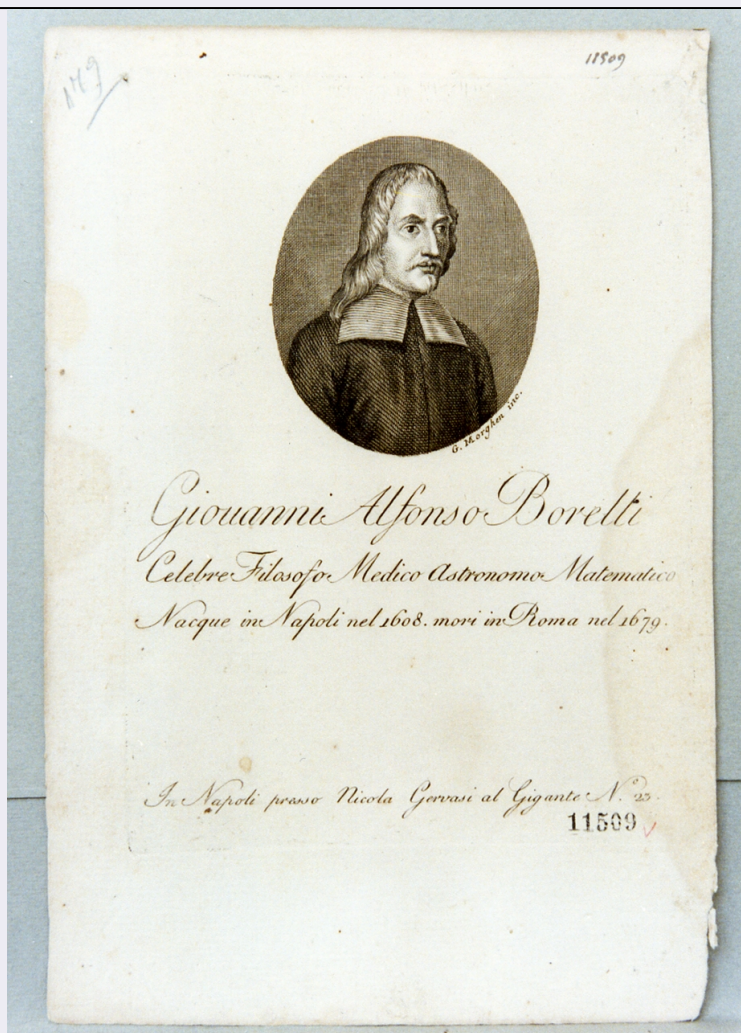 149
11509
G. Morghen inc.
Giouanni Alfonso Borelli
Celebre Filosofo Medico Astronomo Matematico
Nacque in Napoli nel 1608. mori in Roma nel 1679.
In Napoli presso Nicola Gervasi al Gigante N.º 23.
11509